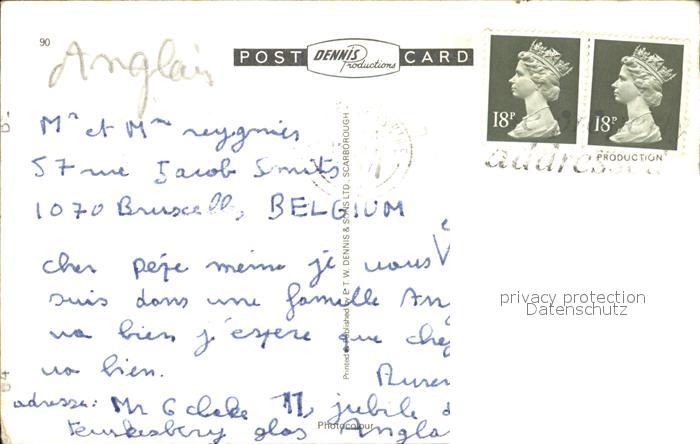 90
Anglais
POST DENNIS Productions CARD
18P 18P
addresse
PRODUCTION
Mr et Mme reygnies
57 rue Jacob Smits
1070 Bruxelles BELGIUM
cher pépe meme je vous
suis dans une famille An
va bien j'espere que che
va bien.
Auré
adresse: Mr G clake 11, jubile
Teuskesbery glos Angla
Printed & Published by E.T.W. DENNIS & SONS LTD., SCARBOROUGH
Photocolour
privacy protection
Datenschutz